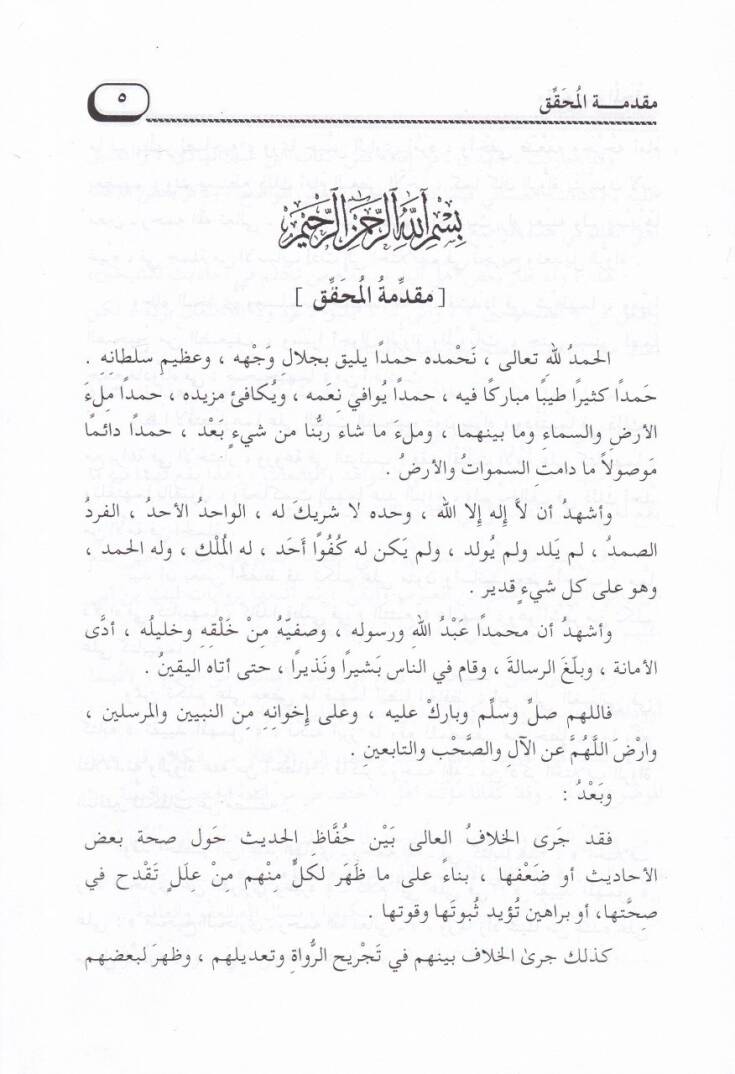 مقدمـــة المُحَقِّق
٥
بِسْمِ اللَّهِ الرَّحْمَنِ الرَّحِيمِ
[ مقدِّمةُ المُحَقِّق ]
الحمدُ للهِ تعالى ، نَحْمده حمدًا يليق بجلال وَجْهه ، وعظيمِ سلطانِهِ .
حَمدًا كثيرًا طيبًا مباركًا فيه ، حمدًا يُوافي نِعمه ، ويُكافئ مزيده ، حمدًا مِلءَ
الأرضِ والسماءِ وما بينهما ، وملءَ ما شاء ربُّنا من شيءٍ بَعْد ، حمدًا دائمًا
مَوصولاً ما دامتِ السمواتُ والأرضُ .
وأشهدُ أن لاَ إله إلا الله ، وحده لا شريكَ له ، الواحدُ الأحد ، الفردُ
الصمدُ ، لم يَلد ولم يُولد ، ولم يَكن له كُفُوًا أحَد ، له المُلْك ، وله الحمد ،
وهو على كل شيءٍ قدير .
وأشهدُ أن محمدًا عَبْدُ اللهِ ورسوله ، وصفيّهُ مِنْ خَلْقِهِ وخليلُه ، أدَّى
الأمانة ، وبلّغَ الرسالةَ ، وقام في الناس بَشيرًا ونَذيرًا ، حتى أتاه اليقينُ .
فاللهم صلِّ وسلِّم وباركْ عليه ، وعلى إخوانِهِ مِنِ النبيين والمرسلين ،
وارْضَ اللَّهُمَّ عن الآلِ والصَّحْب والتابعينِ .
وبَعْدُ :
فقد جَرى الخلافُ العالى بَيْن حُفَّاظِ الحديث حَول صحة بعض
الأحاديث أو ضَعْفها ، بناءً على ما ظهَر لكلٍّ منْهم مِنْ علَلٍ تَقْدح في
صِحَّتها، أو براهين تُؤيد ثُبوتَها وقوتها .
كذلك جرىٰ الخلاف بينهم في تَجْريح الرُّواةِ وتعديلهم ، وظهرَ لبعضهم